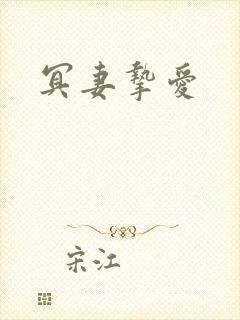 冥妻摯愛
宋江